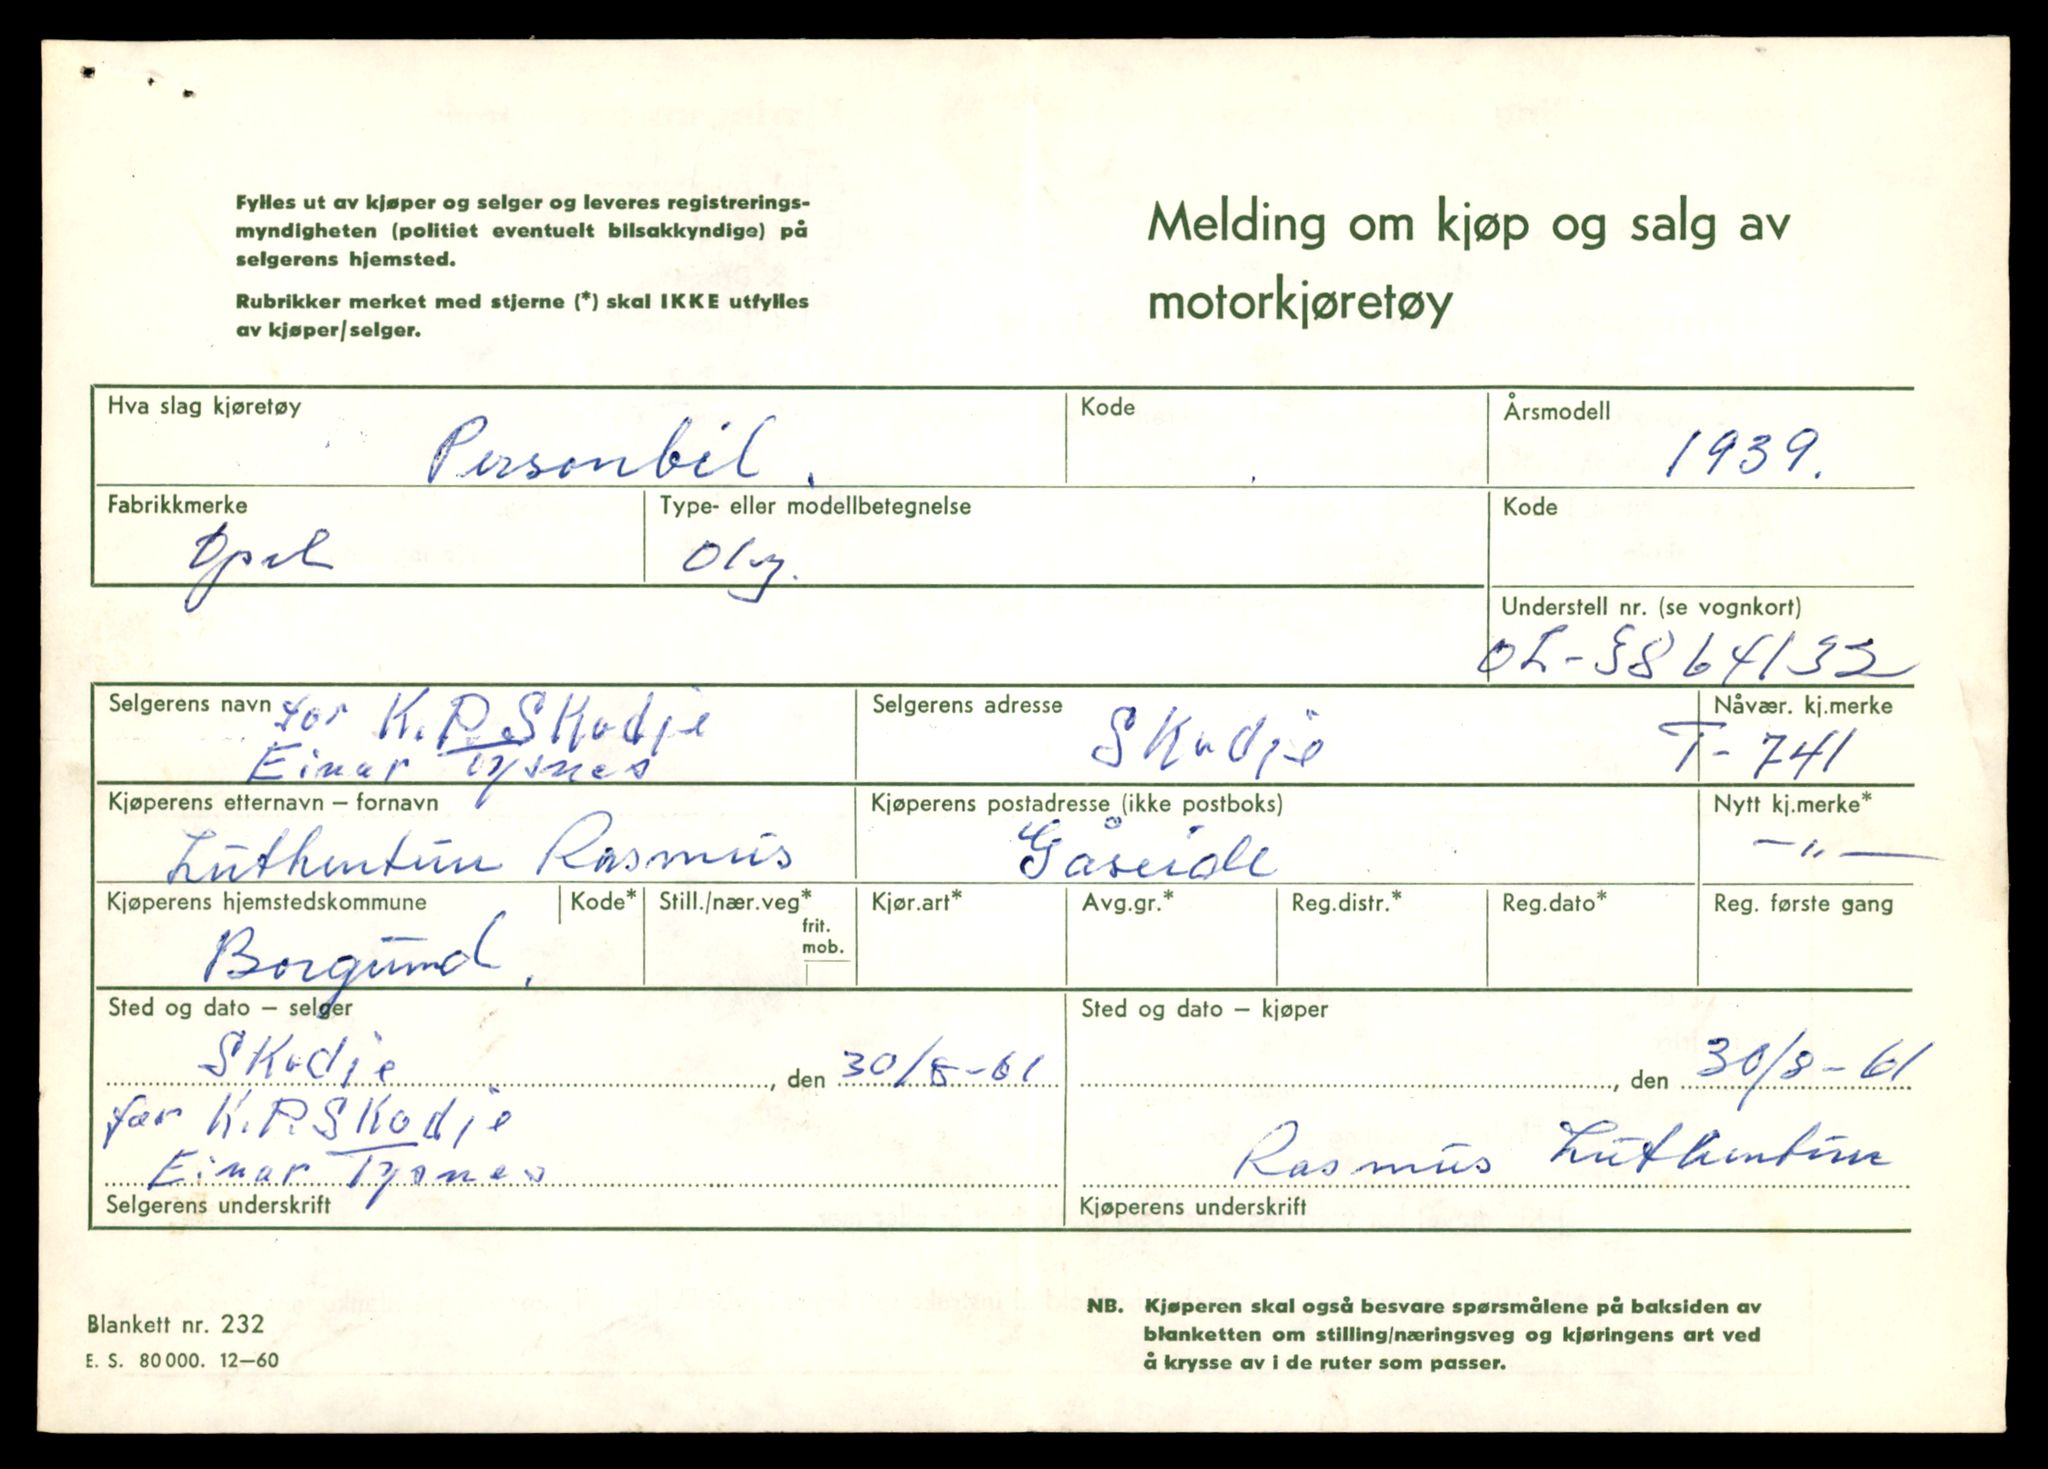 Fylles ut av kjøper og selger og leveres registrerings-
myndigheten (politiet eventuelt bilsakkyndige) på
selgerens hjemsted.
Rubrikker merket med stjerne (*) skal IKKE utfylles
av kjøper/selger.
Melding om kjøp og salg av
motorkjøretøy
Hva slag kjøretøy
Personbil.
Kode
Årsmodell
1939.
Fabrikkmerke
Opel
Type- eller modellbetegnelse
Oly.
Kode
Understell nr. (se vognkort)
OL-3864132
Selgerens navn
for K.P. Skodje
Einar Tysnes
Selgerens adresse
Skodje
Nåvær. kj.merke
T-741
Kjøperens etternavn – fornavn
Luthentun Rasmus
Kjøperens postadresse (ikke postboks)
Gåseide
Nytt kj.merke*
—"—
Kjøperens hjemstedskommune
Borgund.
Kode*
Still./nær.veg*
frit.
mob.
Kjør.art*
Avg.gr.*
Reg.distr.*
Reg.dato*
Reg. første gang
Sted og dato – selger
Skodje, den 30/8-61
for K.P. Skodje
Einar Tysnes
Selgerens underskrift
Sted og dato – kjøper
, den 30/8-61
Rasmus Luthentun
Kjøperens underskrift
Blankett nr. 232
E. S. 80 000. 12—60
NB. Kjøperen skal også besvare spørsmålene på baksiden av
blanketten om stilling/næringsveg og kjøringens art ved
å krysse av i de ruter som passer.